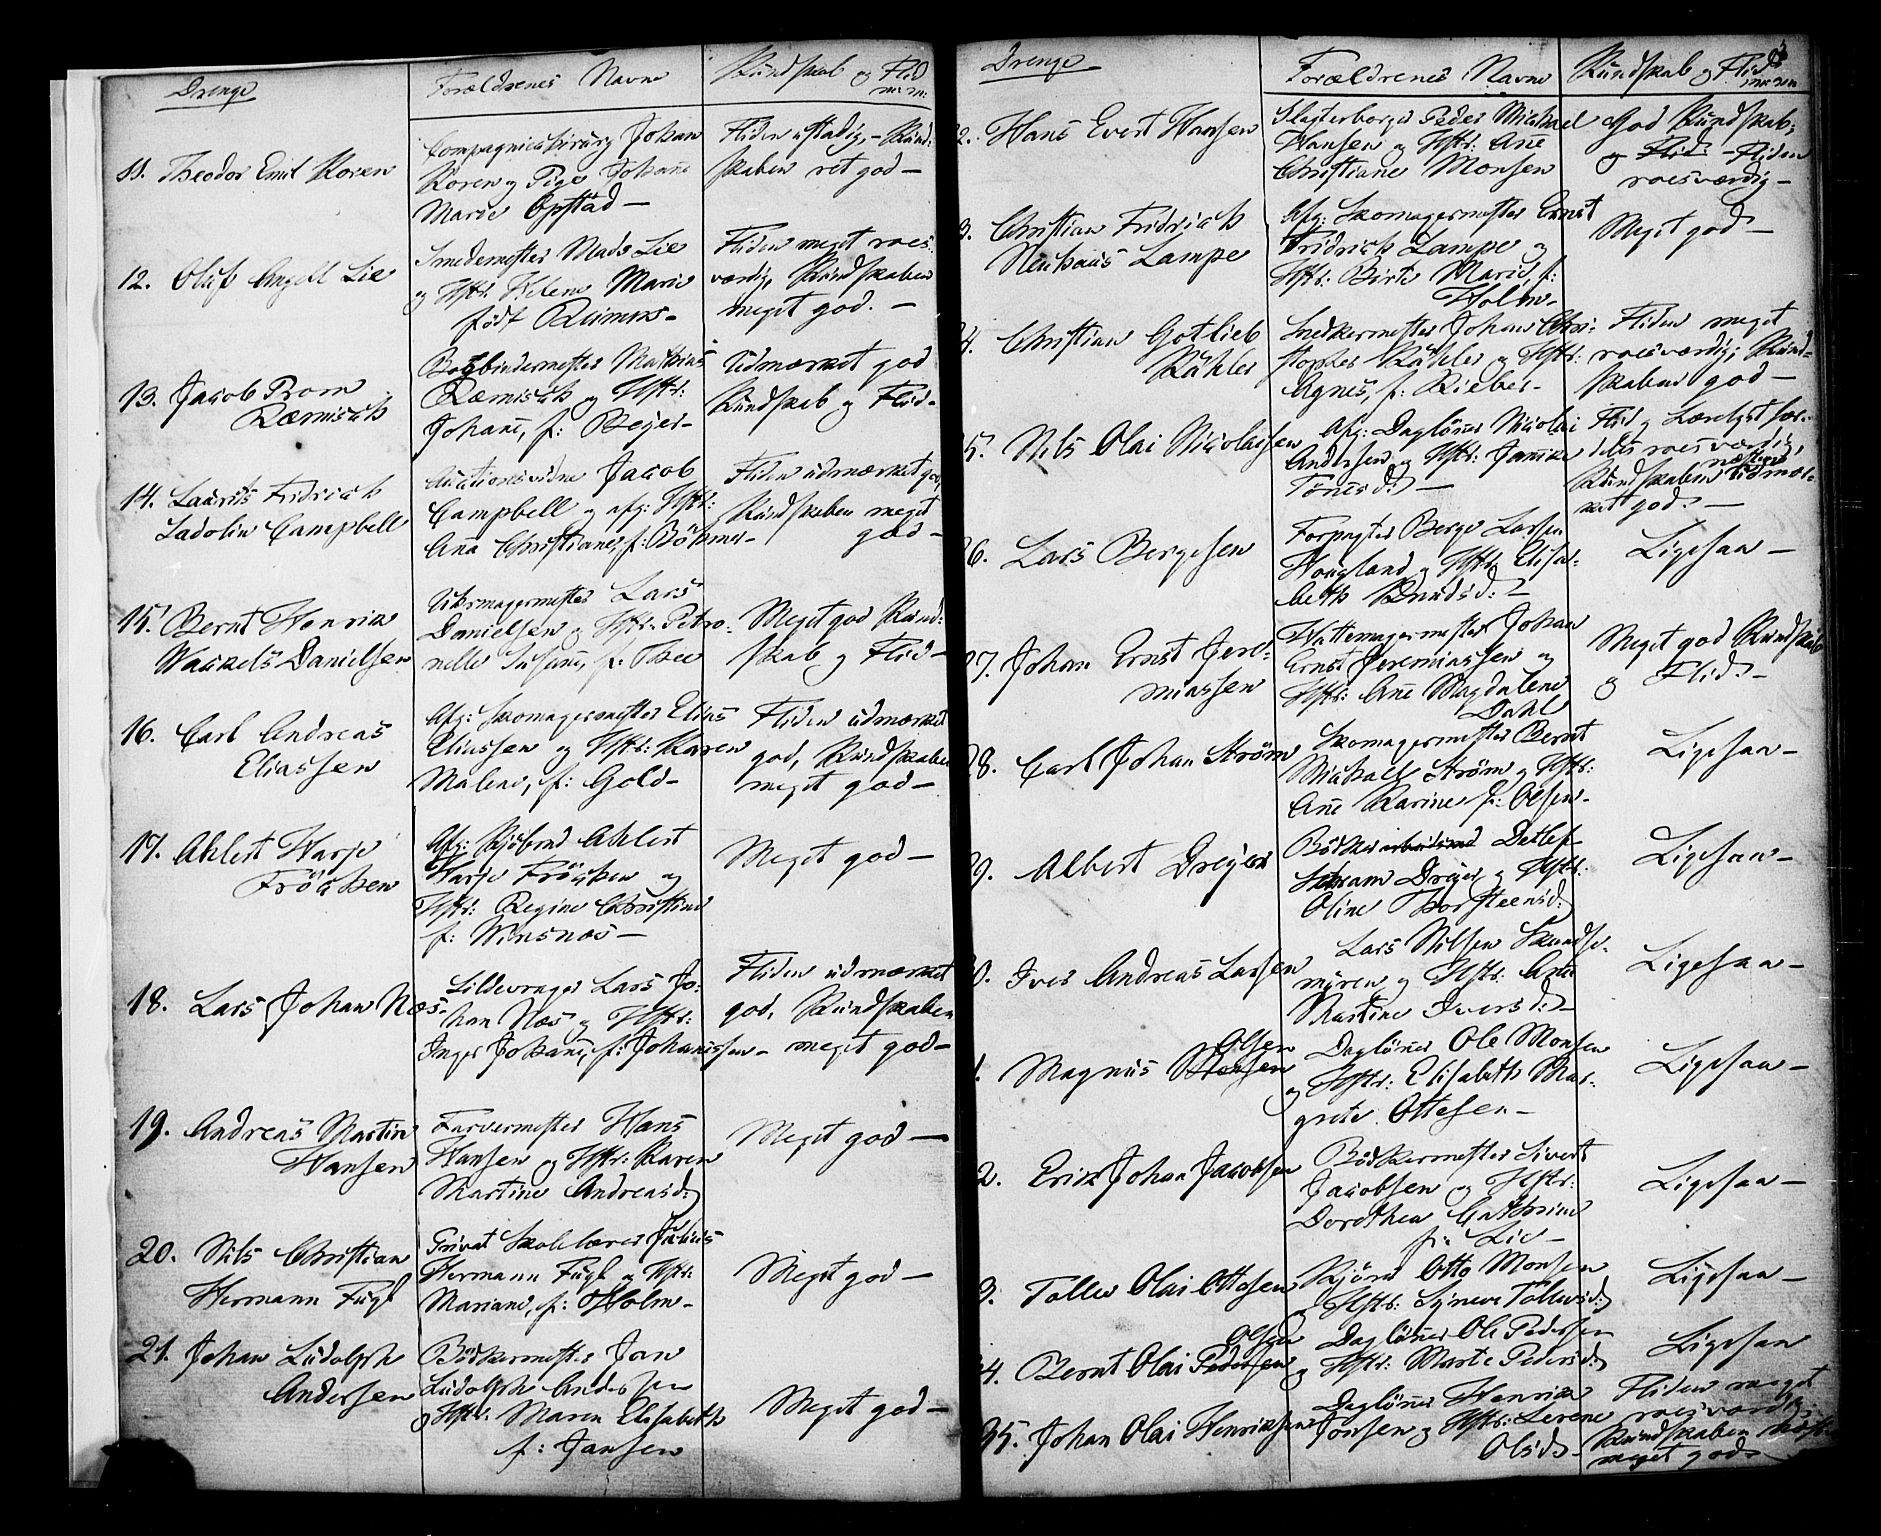 Drenge
Forældrenes Navne
Kundskab og Flid
m: m:
11. Theodor Emil Koren
Compagniechirurg Johan
Koren og Pige Johane
Marie Opstad —
Fliden stadig, - Kund-
skaben ret god —
12. Oluf Angell Lie
Smedemester Mads Lie
og Hstr. Helene Marie
født Reimers -
Fliden meget roes
værdig, Kundskaben
meget god. —
13. Jacob Prom
Ræmisch
Bogbindermester Mathias
Ræmisch og Hstr:
Johane, f: Beyer -
Udmærket god
Kundskab og Flid -
14. Laurits Fridrich
Ladolin Campbell
Auctionsvidne Jacob
Campbell og afg: Hstr:
Ana Christiane, f: Böhmer -
Fliden udmærket god,
Kundskaben meget
god -
15. Bernt Henrik
Wackels Danielsen
Uhrmagermester Lars
Danielsen og Hstr: Petro-
nelle Susane, f:
Meget god Kund-
skab og Flid -
16. Carl Andreas
Eliassen
Afg: Skomagermester Elias
Eliassen og Hstr: Karen
Malene, f: Gold -
Fliden udmærket
god, Kundskaben
meget god -
17. Ahlert Harje
Fröchen
Afg: Kjöbmd Ahlert
Harje Fröchen og
Hstr: Regine Christine
f: Winsnes —
Meget god —
18. Lars Johan Næs -
Sildevrager Lars Jo-
han Næs og Hstr:
Inger Johane, f: Johanssen -
Fliden udmærket
god, Kundskaben
meget god -
19. Andreas Martin
Hansen
Farvermester Hans
Hansen og Hstr: Karen
Martine Andreasd:
Meget god —
20. Nils Christian
Hermann Fugl
Privat Skolelærer Julius
Hermann Fugl og Hstr:
Mariane, f: Holm -
Meget god —
21. Johan Ludolph
Andersen
Bödkermester Jan
Ludolph Andersen
og Hstr: Maren Elisabeth
f: Jansen
Meget god -
Drenge
Forældrenes Navne
Kundskab og Flid
m: m:
2. Hans Evert Hansen
Slagterborger Peder Michael
Hansen og Hstr: Ane
Christiane Monsen
God Kundskab;
og Flid. - Fliden
roesværdig —
3. Christian Fridrich
Neuhaus Lampe
Afg: Skomagermester Ernst
Fridrich Lampe og
Hstr: Birte Marie f:
Holm -
Meget god —
4. Christian Gotlieb
Kähler
Snedkermester Johan Chri-
stopher Kähler og Hstr:
Agnes, f: Rieber -
Fliden meget
roesværdig; Kund-
skaben god —
5. Nils Olai Nicolaisen
Afg: Daglöner Nicolai
Andersen og Hstr: Janike
Tönesd: —
Flid og Lærelyst sær-
deles roesværdig,
næsten
Kundskaben udmær-
ket god. —
6. Lars Bergesen
Forpagter Berge Larsen
Hougland og Hstr: Elisa-
beth Knudsd: -
Ligesaa —
7. Johan Ernst Jere-
miassen
Hattemagermester Johan
Ernst Jeremiassen og
Hstr: Ane Magdalene
Dahl
Meget god Kundskab
og Flid. -
8. Carl Johan Ström
Skomagermester Bernt
Michael Ström og Hstr:
Ane Karine f: Olsen -
Ligesaa —
9. Albert Dreyer
Bödker Detlef
Schram Dreyer og Hstr:
Oline Thorsteensd:
Ligesaa —
0. Iver Andreas Larsen
Lars Nilsen Skandse-
myren og Hstr: Ane
Martine Iversd: -
Ligesaa —
Olsen
1. Magnus Monsen
Daglöner Ole Monsen
og Hstr: Elisabeth Mar-
grete Ottesen —
Ligesaa —
2. Erick Johan Jacobsen
Bödkermester Sivert
Jacobsen og Hstr:
Dorothea Cathrine
f: Lie -
Ligesaa —
3. Tollev Olai Ottesen
Kjörer Otto Monsen
og Hstr: Synneve Tollevsd:
Ligesaa —
Olsen
4. Bernt Olai Pedersen
Daglöner Ole Pedersen
og Hstr: Marte Pedersd:
Ligesaa
35. Johan Olai Henriksen
Daglöner Henrik
Jonsen og Hstr: Serene
Olsd: -
Fliden meget
roesværdig;
Kundskaben næst-
meget god